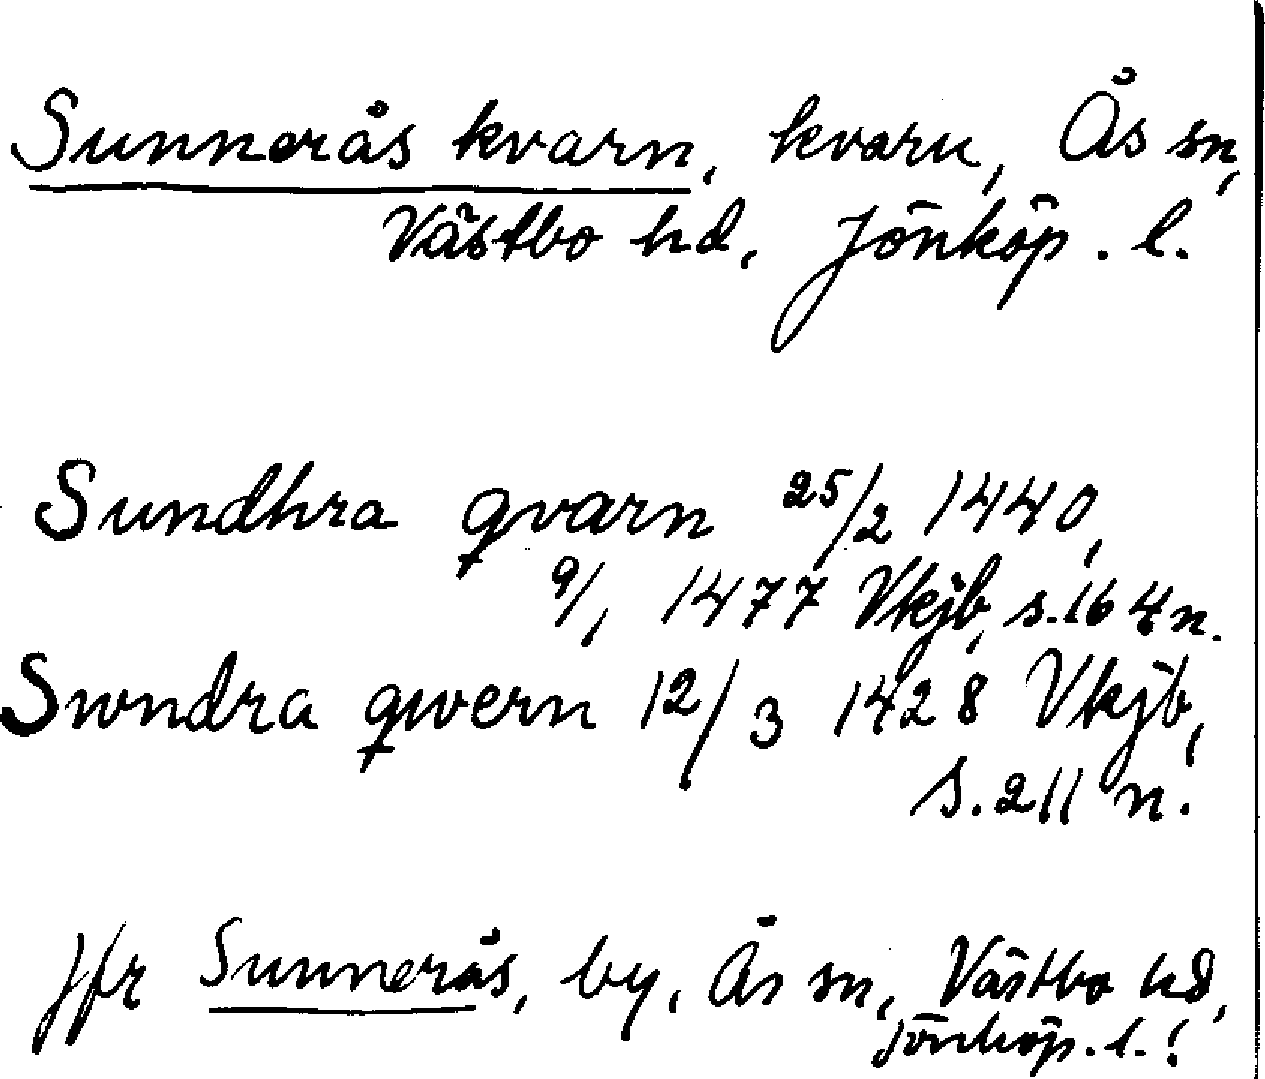 Sunnerås kvarn, kvarn, Ås sn,
Västbo hd, Jönköp. l.
Sundhra qvarn 25/2 1440,
9/1 1477 Vkjb, s. 164 n.
Swndra qwern 12/3 1428 Vkjb,
s. 211 n.
Jfr Sunnerås, by, Ås sn, Västbo hd,
Jönköp. l.!